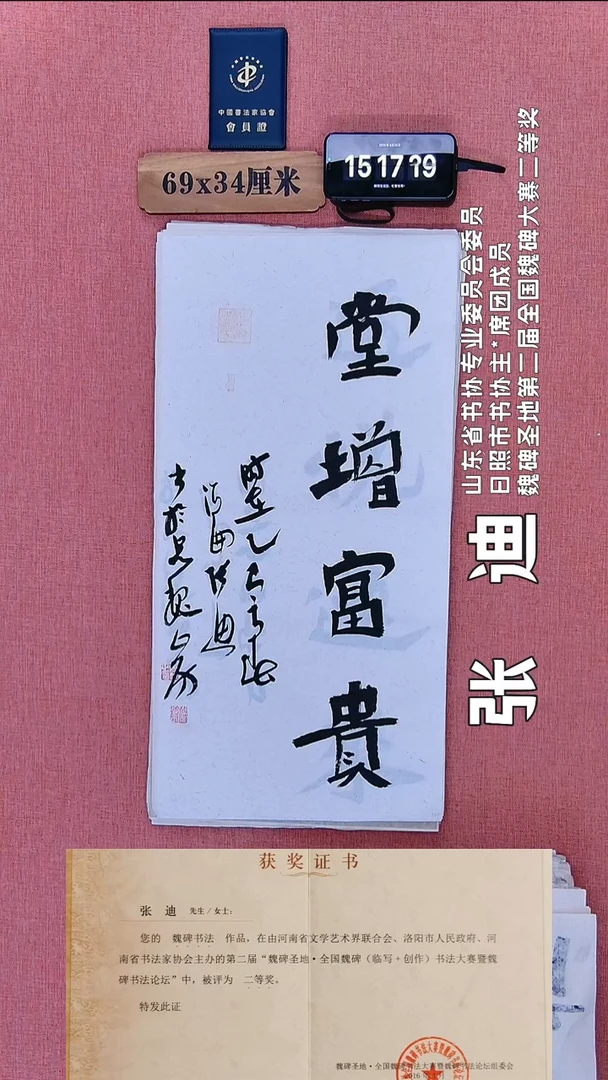 中國書法家協會
會員證
69x34厘米
15 17 39
堂增富貴
時在乙巳之春
海曲张迪
山东省书协专业委员会委员
日照市书协主*席团成员
魏碑圣地第二届全国魏碑大赛二等奖
张 迪
获奖证书
张 迪 先生/女士:
您的 魏碑书法 作品,在由河南省文学艺术界联合会、洛阳市人民政府、河
南省书法家协会主办的第二届“魏碑圣地·全国魏碑(临写+创作)书法大赛暨魏
碑书法论坛”中,被评为 二等奖。
特发此证
魏碑圣地·全国魏碑书法大赛暨魏碑书法论坛组委会